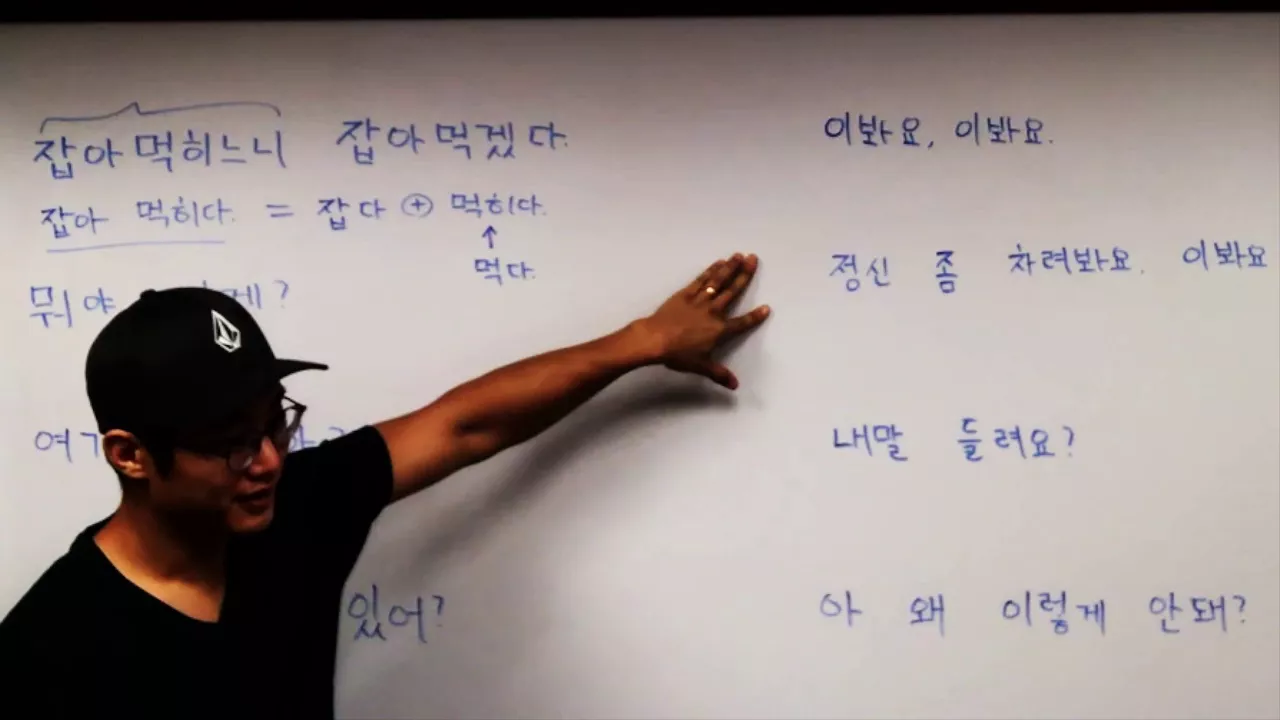 잡아먹히느니 잡아먹겠다.
잡아 먹히다. = 잡다 ⊕ 먹히다.
↑
먹다.
뭐야 게?
여기
있어?
이봐요, 이봐요.
정신 좀 차려봐요. 이봐요
내말 들려요?
아 왜 이렇게 안돼?